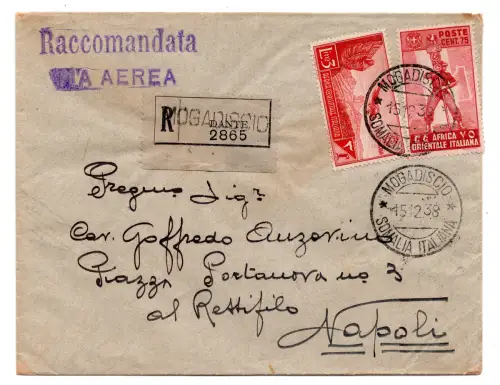 Raccomandata
VIA AEREA
R MOGADISCIO
DANTE
2865
POSTE
CENT. 75
AFRICA
ORIENTALE ITALIANA
MOGADISCIO
15.12.38
SOMALIA ITALIANA
MOGADISCIO
15.12.38
SOMALIA ITALIANA
Pregmo Sigr
Cav. Goffredo Auzorino
Piazza Portanova no 3
al Rettifilo
Napoli